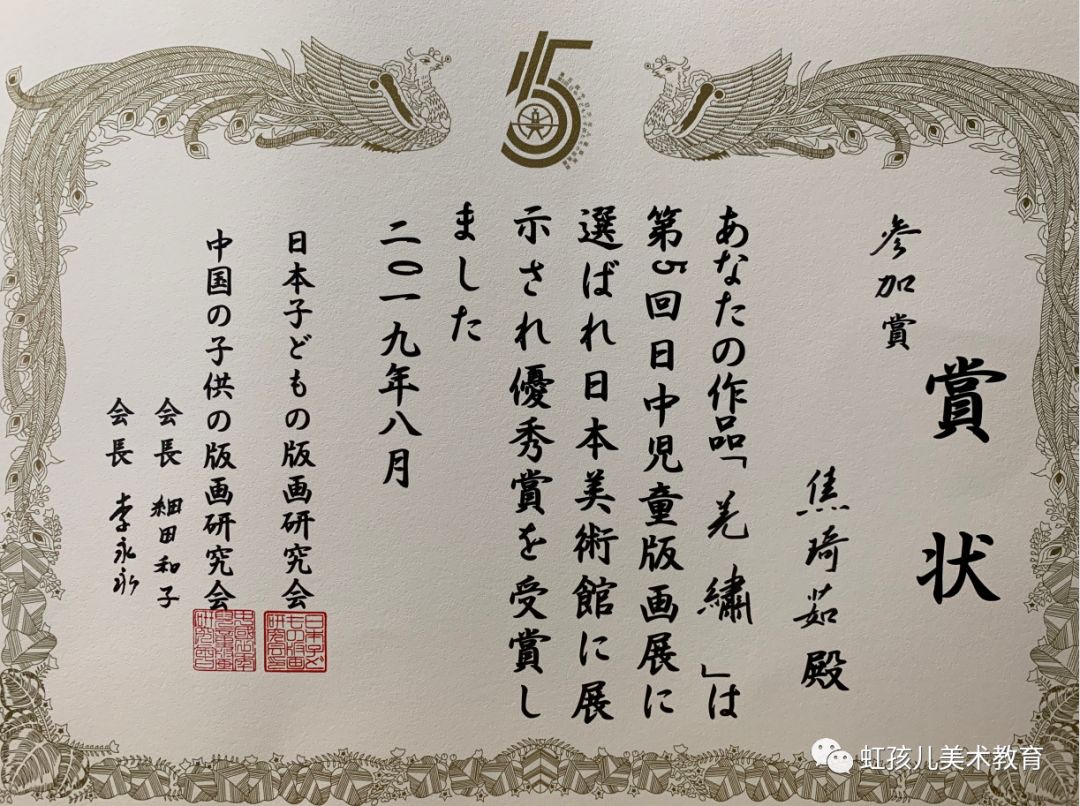 参加賞
賞状
焦琦茹殿
あなたの作品「羌繡」は
第5回日中児童版画展に
選ばれ日本美術館に展
示され優秀賞を受賞し
ました
二〇一九年八月
日本子どもの版画研究会
中国の子供の版画研究会
会長 細田和子
会長 李永永
15
虹孩儿美术教育